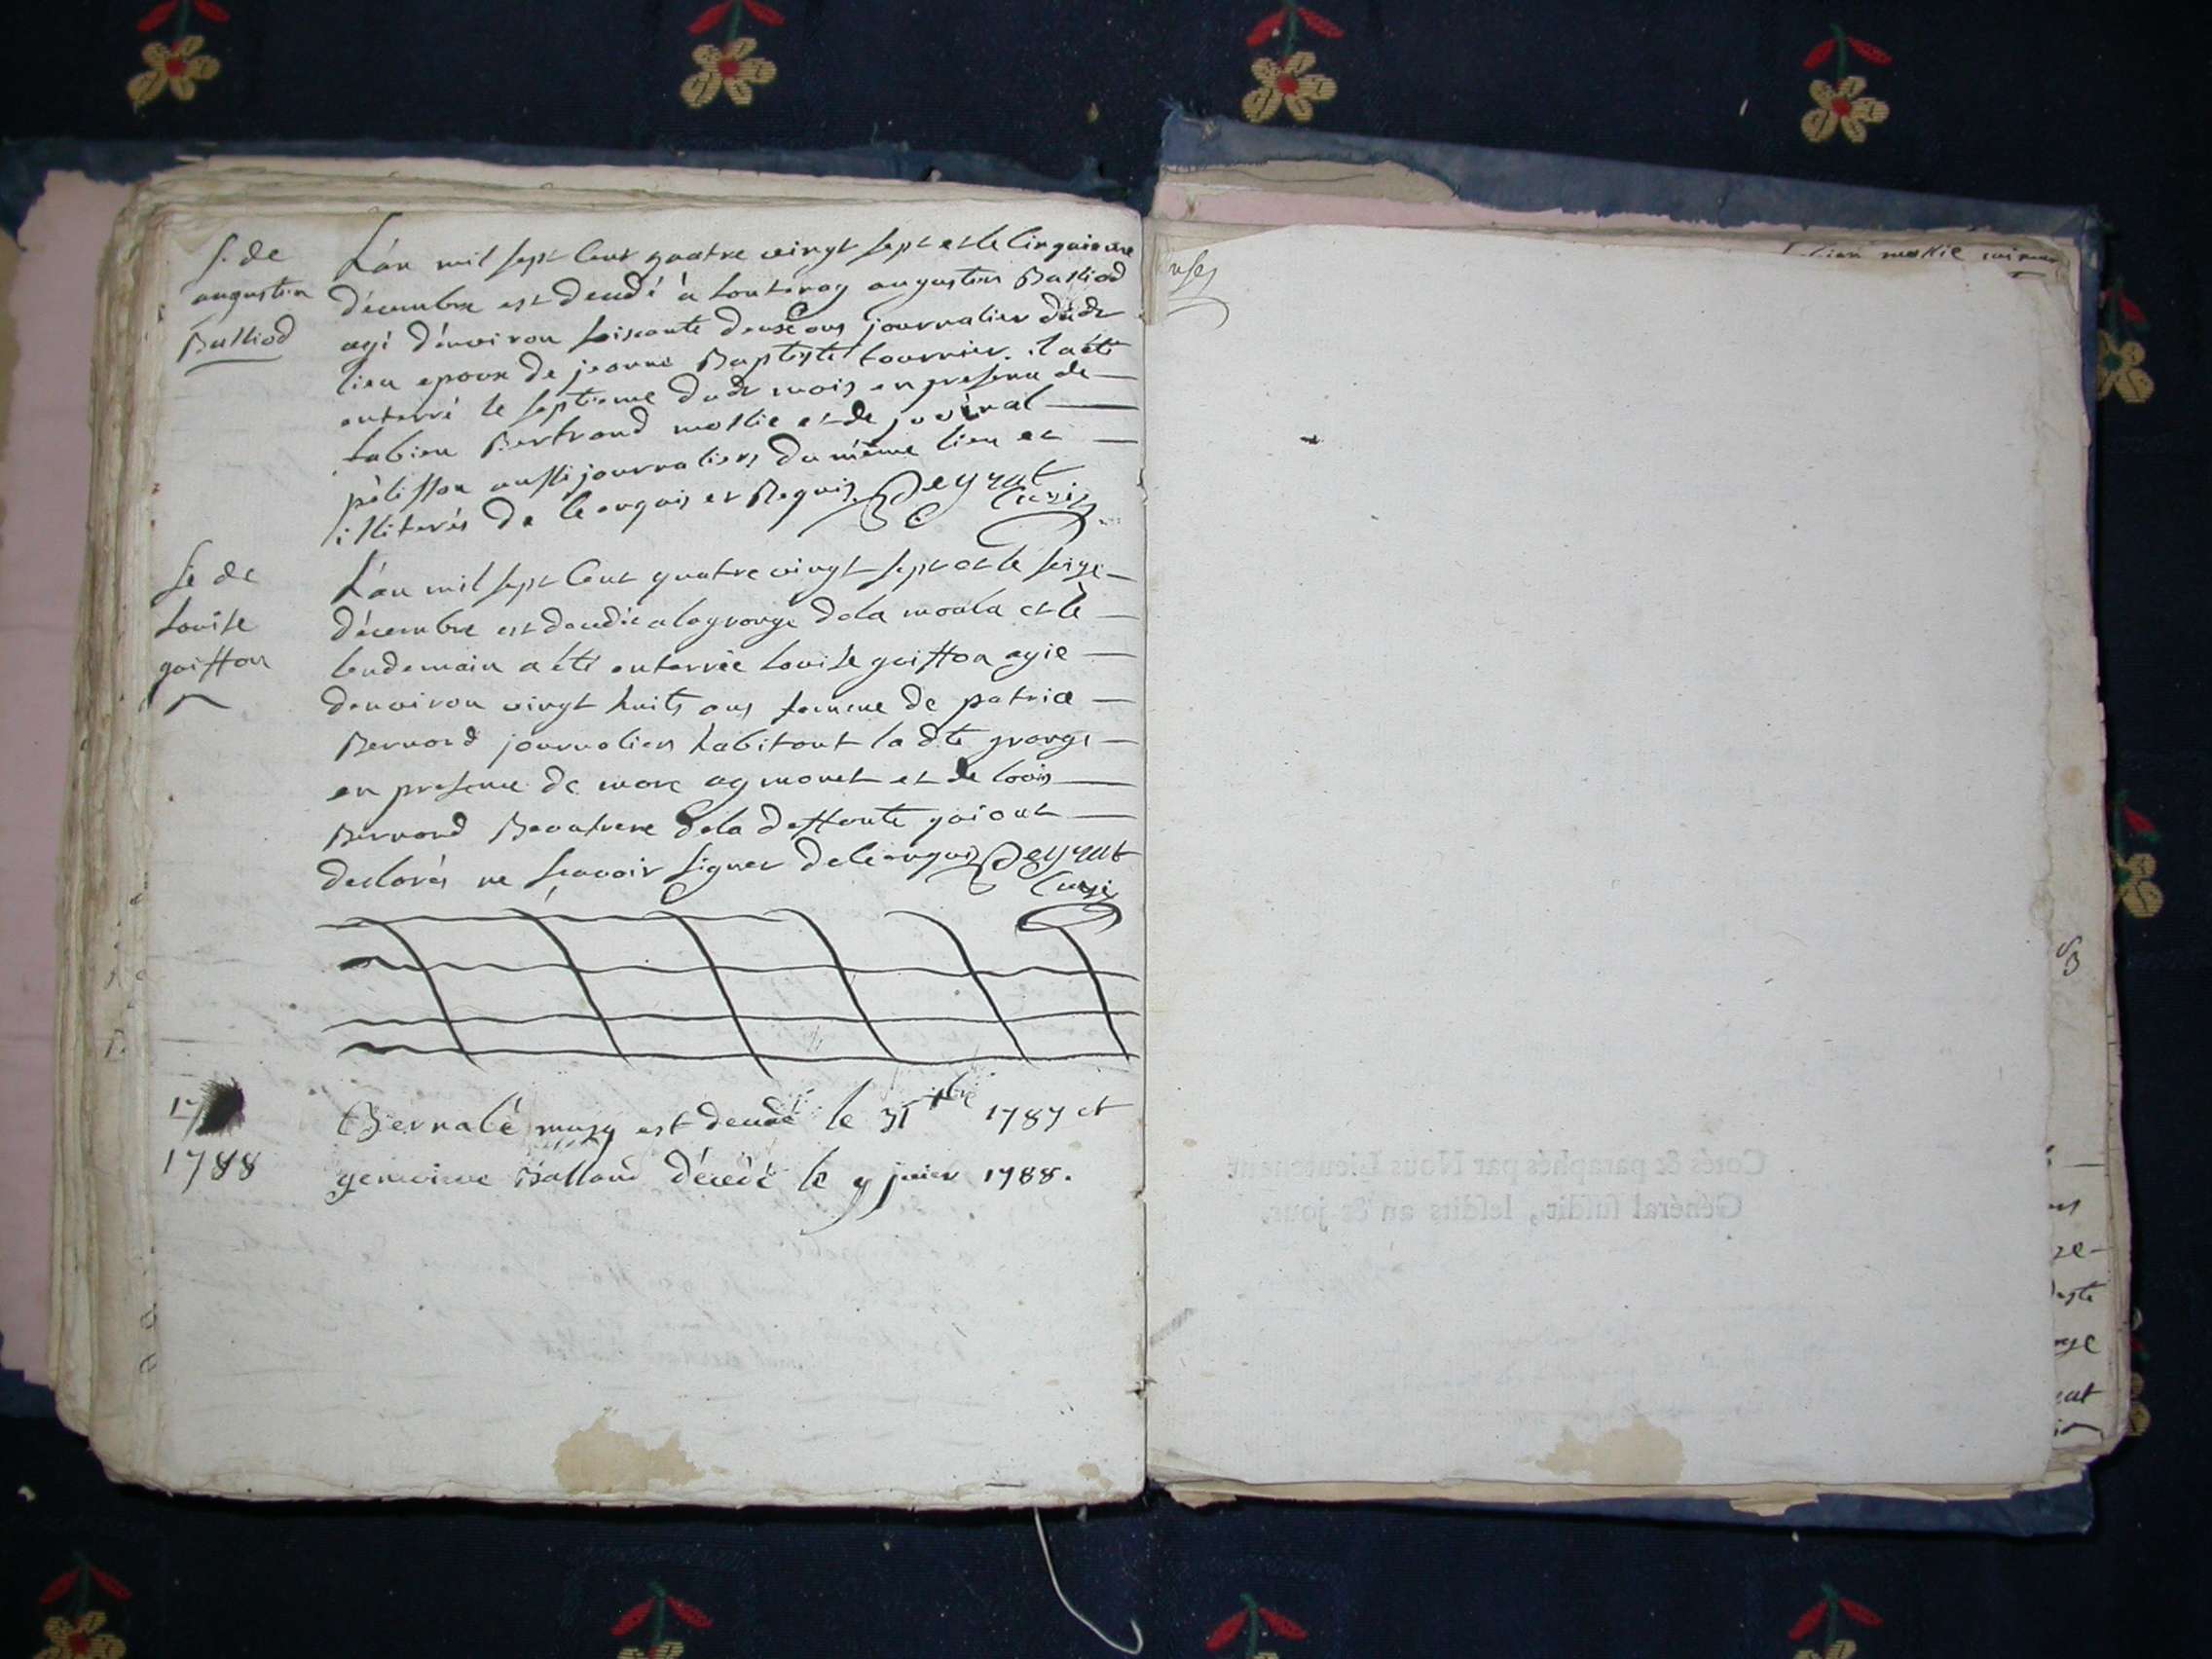 S. de
augustin
Bulliod
L'an mil sept cent quatre vingt sept et le cinquieme
décembre est deudé à
augustin Bulliod
agé d'environ soixante deuse ans journalier dudt
lieu epoux de jeanne Baptiste tournier. il a été
enterré le septieme dudt mois en presence de
fabien Bertrand mollie et de juvénal
pélisson aussi journaliers du même lieu et
illiterés de ce enquis et Requis Peyrat
Curé
S. de
Louise
goiffon
L'an mil sept cent quatre vingt sept et le seize
décembre est deudée a la grange de la moula et le
lendemain a été enterrée Louise goiffon agée
d'environ vingt huits ans femme de patrice
Bernard journalier habitant la dte grange
en presence de marc aymonet et de Louis
Bernard de la
declarés ne sçavoir signer de ce enquis Peyrat
Curé
17
Bernabé musy est deudé le 31 xbre 1787 et
1788
genevieve Balland décédé le 9 janier 1788.
mollie
Cotés & paraphés par Nous Lieutenant
Général susdit, lesdits an & jour.